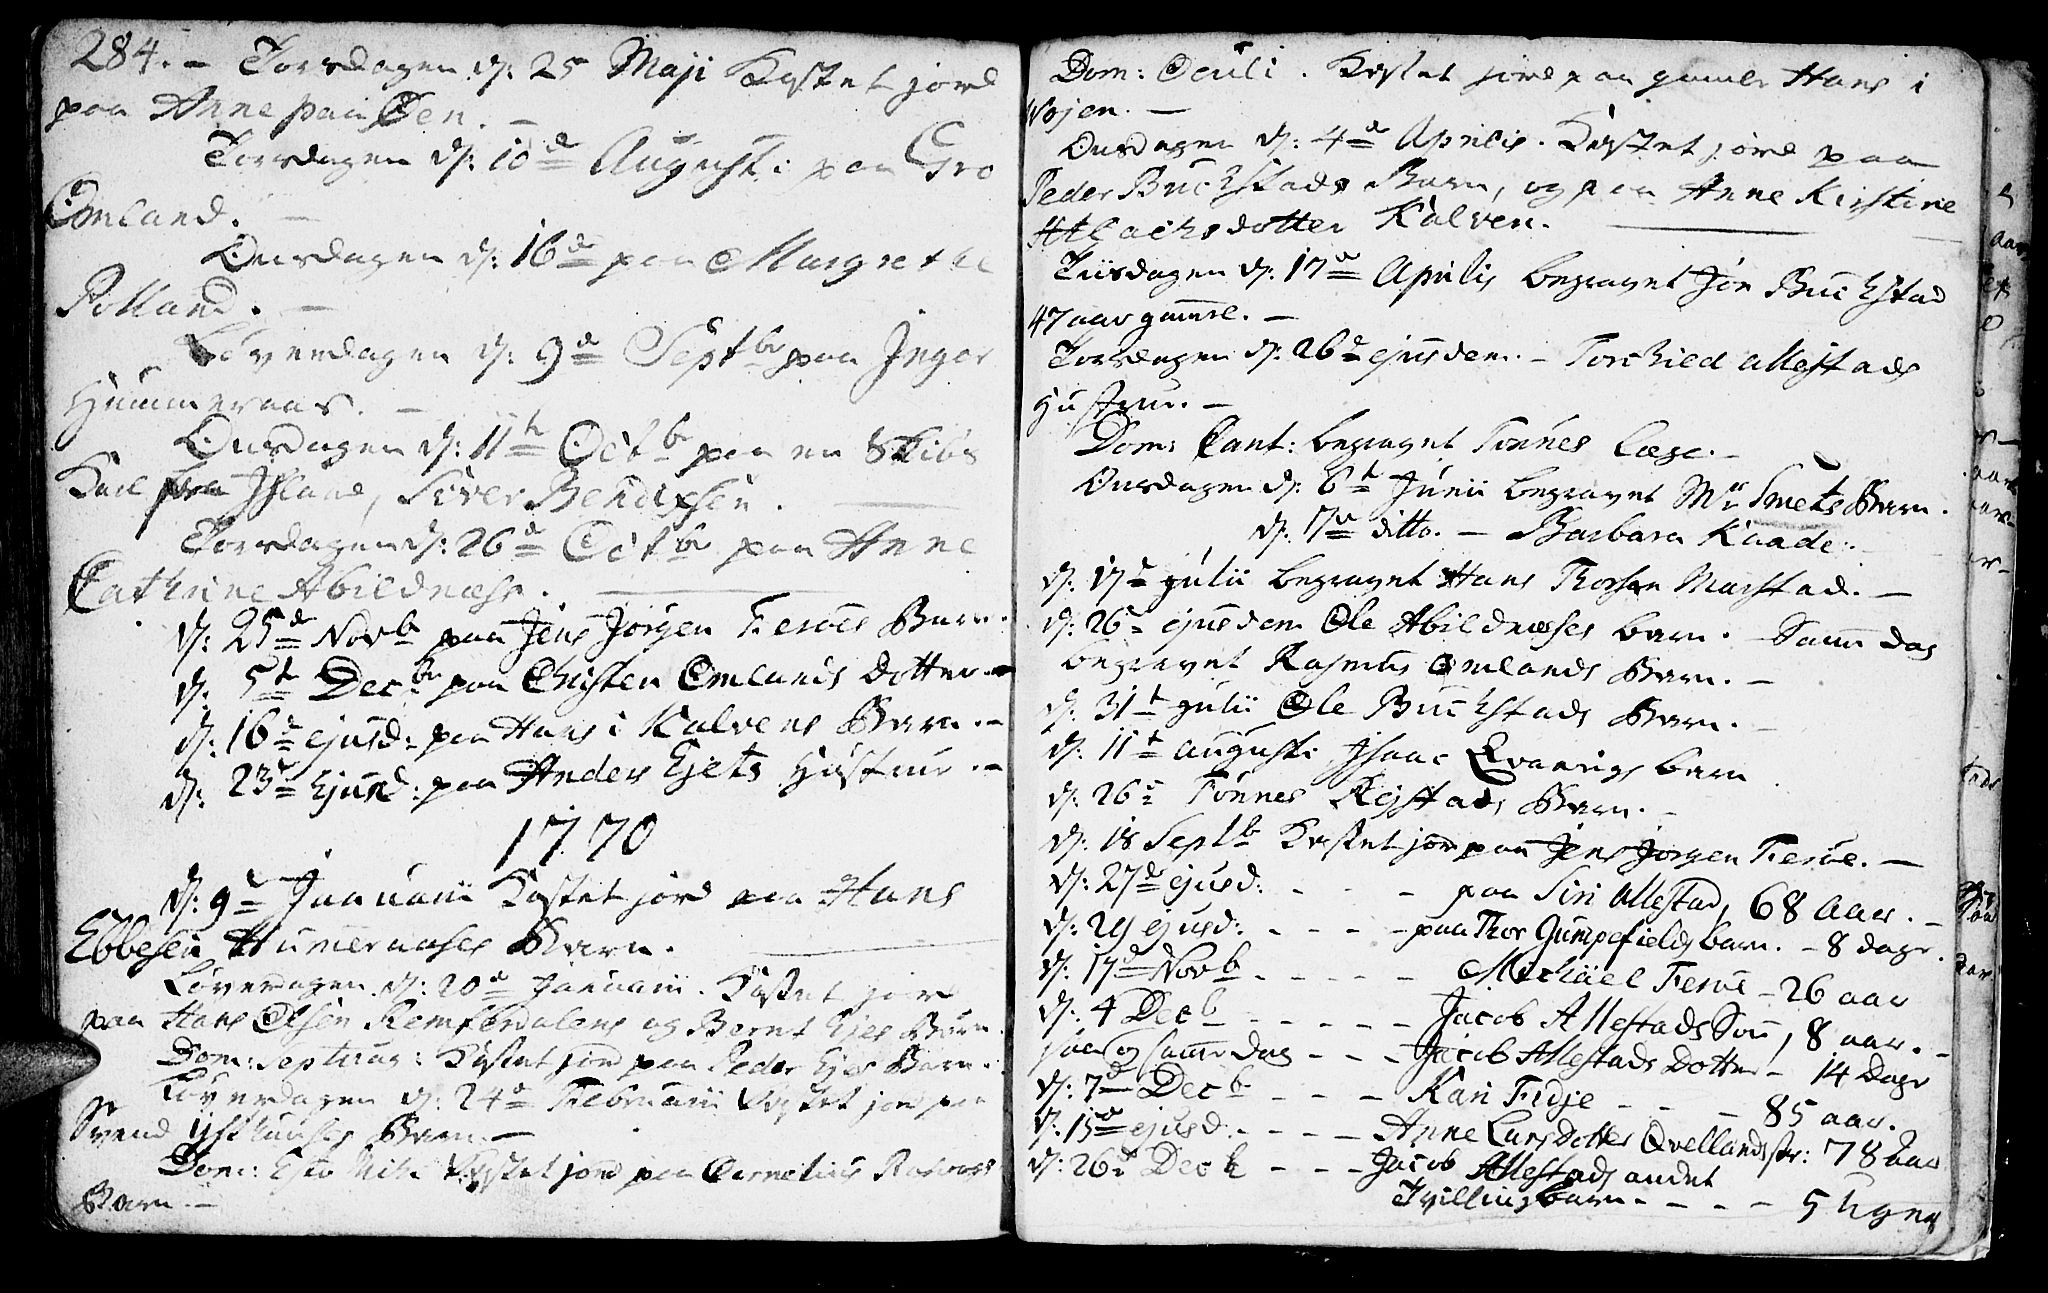 284. - Torsdagen d: 25 Maji Kastet jord
paa Anne paa Øen. -
Torsdagen d: 10de Augusti paa Gro
Omland. -
Onsdagen d: 16de paa Margrethe
Rolland. -
Løverdagen d: 9de Septbr paa Inger
Hummeraas. -
Onsdagen d: 11te Octbr paa en Skibs
Karl fra Island, Siver Bendixsen. -
Torsdagen d: 26de Octbr paa Anne
Cathrine Abildnæss. -
d: 25de Novb paa Jens Jørgen Ferøes Barn.
d: 5te Decbr paa Christen Omlands Dotter. -
d: 16de ejusd: paa Hans i Kalvens Barn. -
d: 23de Ejusd: paa Anders Ejets Hustrue. -
1770
d: 9de Januarii Kastet jord paa Hans
Ebbesen Humeraases Barn.
Løverdagen d: 20de Januarii. Kastet jord
paa Hans Olsen Remsferdalens og Bernt Ejes Børn.
Dom: Septuag: Kastet jord paa Peder Ejes Barn.
Løverdagen d: 24de Februarii Kastet jord paa
Svend Barn. -
Dom: Esto Mihi Kastet jord paa Cornelius
Barn. -
Dom: Oculi. Kastet jord paa gamle Hans i
Vojen. -
Onsdagen d: 4de Aprilis. Kastet jord paa
Peder Buchstads Barn, og paa Anne Kirstine
Atlachsdotter Kalven.
Tiisdagen d: 17de Aprilis begravet Jon Buchstad
47 aar gammel. -
Torsdagen d: 26de ejusdem. - Torchild Allestads
Hustrue. -
Dom: Cant: begravet Tønnes Læge. -
Onsdagen d: 6te Junii begravet Mr Smets Barn.
d: 17de ditto. - Barbara Kaade.
d: 17de Julii begravet Hans Thorsen Marstad. -
d: 26de ejusdem Ole Abildnæses barn. Samme dag
begravet Rasmus Omlands Barn. -
d: 31te Julii Ole Buchstads Barn. -
d: 11te Augusti Isaac Qvanvigs barn
d: 26de Tønnes Rejstads Barn. -
d: 18 Septb Kastet jord paa Jens Jørgen Ferøe. -
d: 27de ejusd: - - - paa Siri Allestad, 68 Aar. -
d: 29 ejusd: - - - - paa Thor Gumpefields barn. - 8 dage.
d: 17de Novb - - - - - Michael Ferøe - 26 aar
d: 4 Decb - - - - - Jacob Allestads Søn, 8 aar. -
jaa og samme dag - - - Jacob Allestads Dotter - 14 Dage
d: 7de Decb - - - Kari Fidje - - - 85 aar.
d: 15de ejusd: - - - - Anne LarsDotter Qvellandstr: 78 aar
d: 26de Decb - - - Jacob Allestads andet
Tvilling barn. - - - - 5 Uger